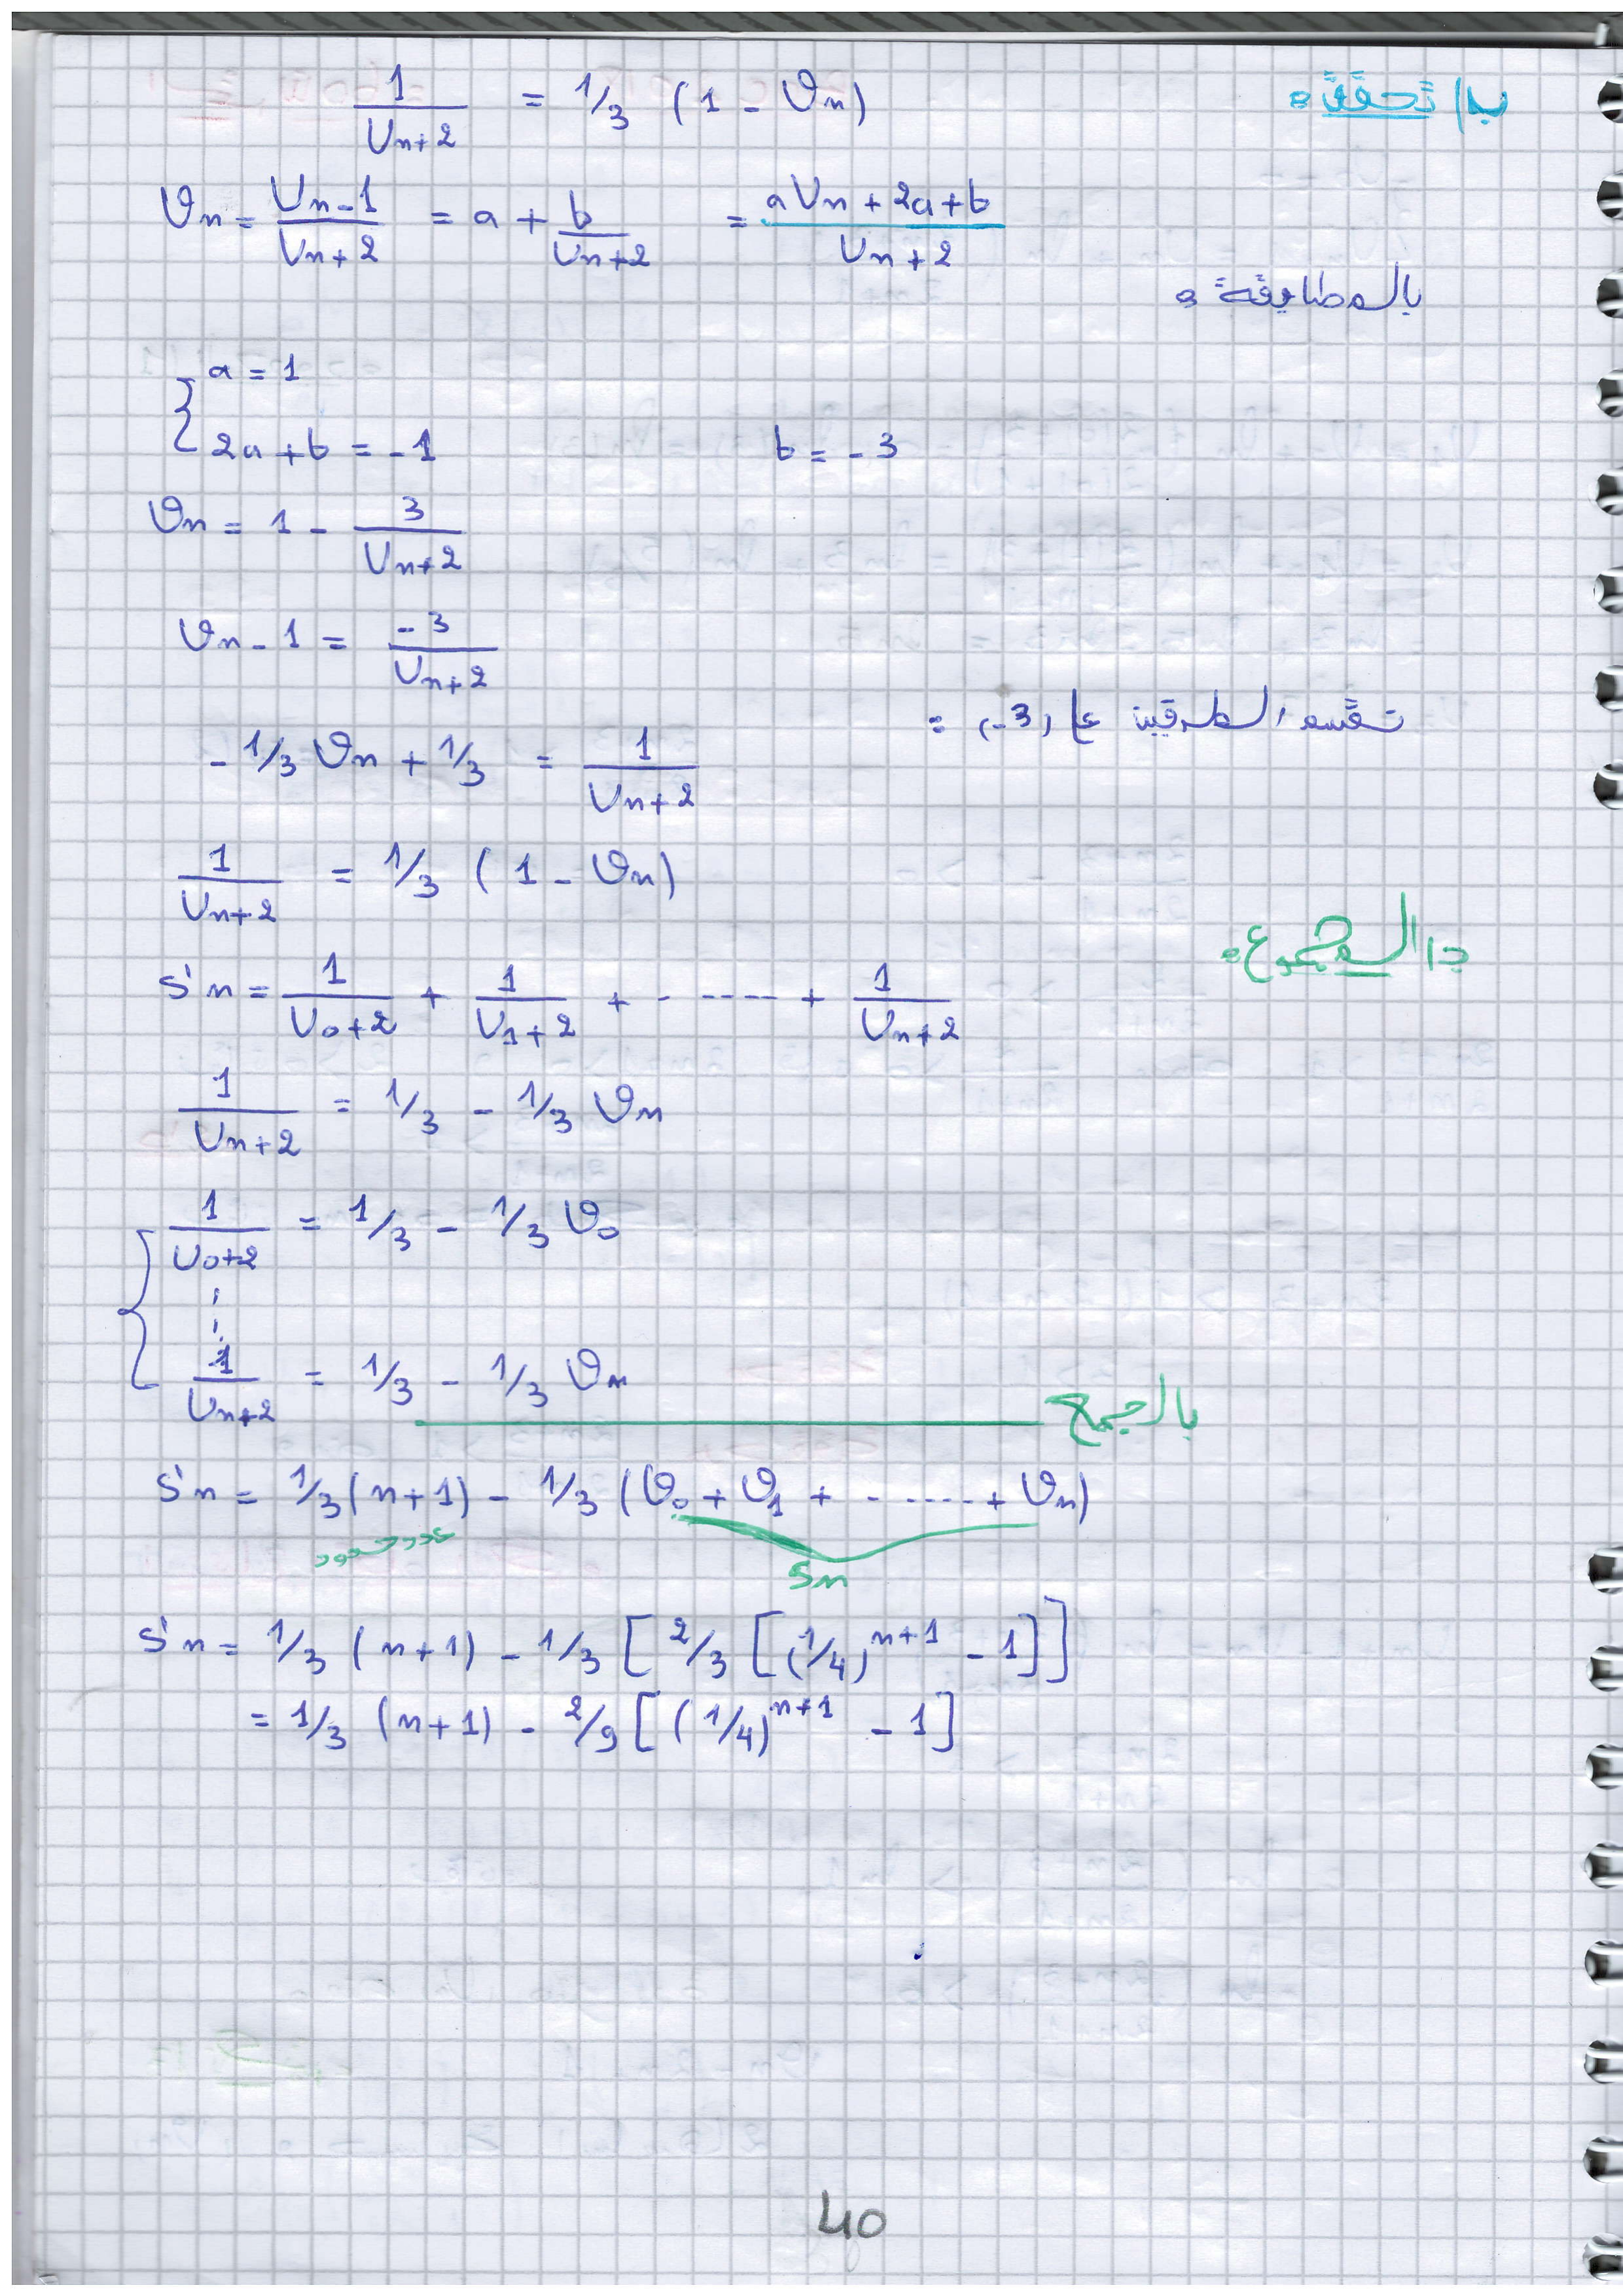 ب/ تحقق:
1/(Un+2) = 1/3 (1 - Vn)
Vn = (Un-1)/(Un+2) = a + b/(Un+2) = (aUn+2a+b)/(Un+2)
بالمطابقة:
{ a = 1
2a+b = -1     b = -3
Vn = 1 - 3/(Un+2)
Vn - 1 = -3/(Un+2)
نقسم الطرفين على (-3) :
-1/3 Vn + 1/3 = 1/(Un+2)
1/(Un+2) = 1/3 (1 - Vn)
ج/ المجموع:
S'n = 1/(U0+2) + 1/(U1+2) + - ---- + 1/(Un+2)
1/(Un+2) = 1/3 - 1/3 Vn
{ 1/(U0+2) = 1/3 - 1/3 V0
⋮
1/(Un+2) = 1/3 - 1/3 Vn
بالجمع
S'n = 1/3(n+1) - 1/3 (V0 + V1 + - ---- + Vn)
عدد حدود     Sn
S'n = 1/3 (n+1) - 1/3 [ 2/3 [(1/4)^n+1 - 1]]
= 1/3 (n+1) - 2/9 [ (1/4)^n+1 - 1]
40